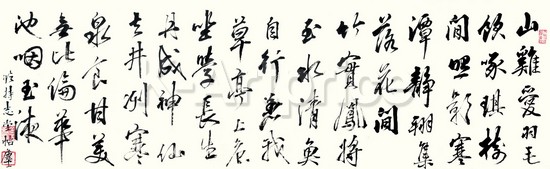 山雞愛羽毛
飲啄琪樹
間照影寒
潭靜翔集
落花間
竹實鳳將
至水清魚
自行羨我
草亭上居
坐學長生
具成神仙
去井冽寒
泉食甘美
無比倫華
池咽玉液